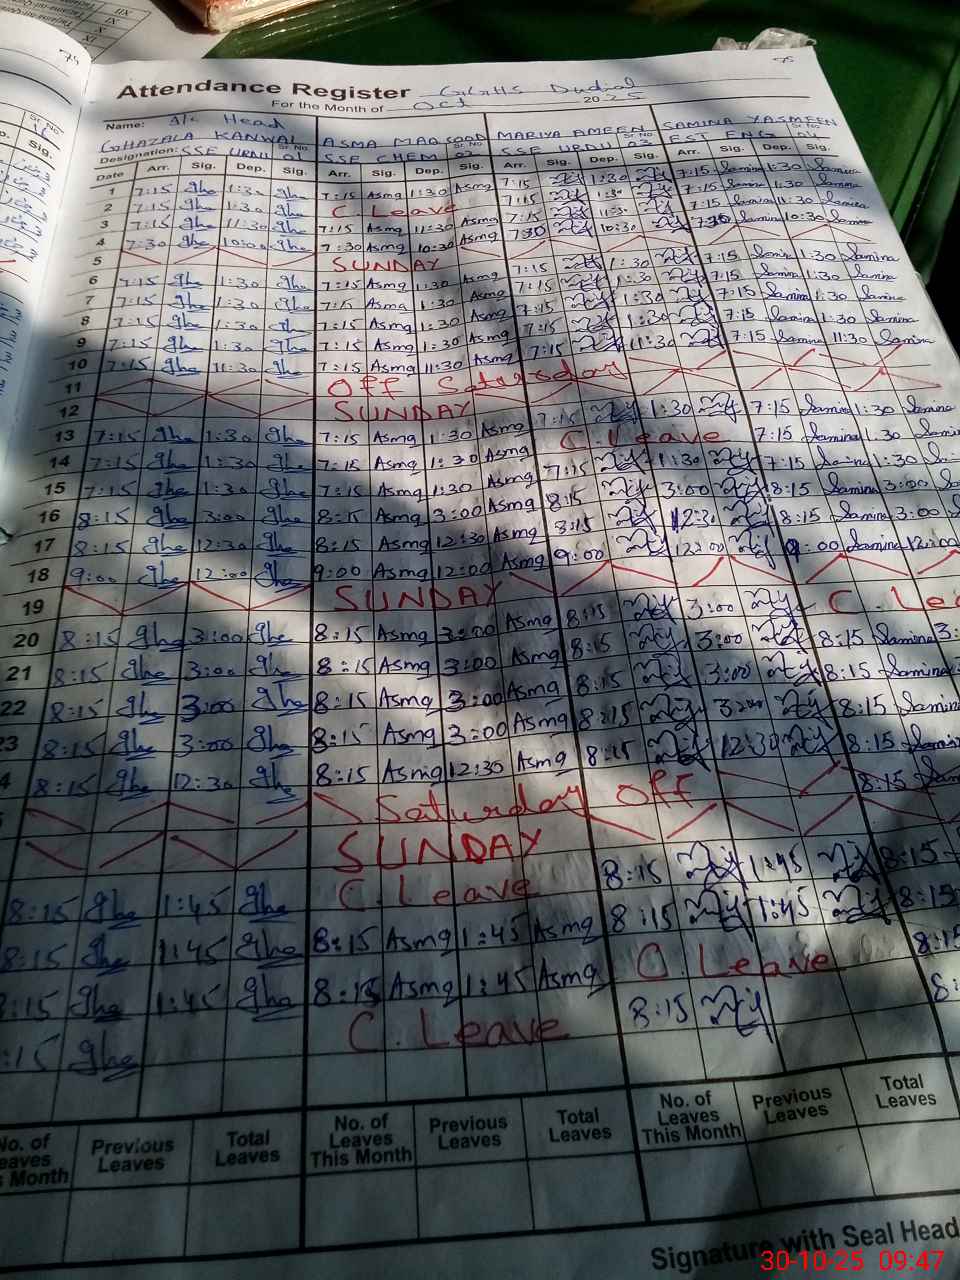 Attendance Register GGHS Dudial
For the Month of Oct 2025
Name: I/c Head
GHAZALA KANWAL ASMA MAQSOOD MARIYA AMEEN SAMINA YASMEEN
Sr. No. Sr. No. Sr. No. Sr. No.
Designation: SSE URDU 01 SSE CHEM 02 SSE URDU 03 EST ENG 04
Date Arr. Sig. Dep. Sig. Arr. Sig. Dep. Sig. Arr. Sig. Dep. Sig. Arr. Sig. Dep. Sig.
1 7:15 Gha 1:30 Gha 7:15 Asma 1:30 Asma 7:15 1:30 7:15 Samina 1:30 Samina
2 7:15 Gha 1:30 Gha C. Leave 7:15 1:30 7:15 Samina 1:30 Samina
3 7:15 Gha 11:30 Gha 7:15 Asma 11:30 Asma 7:15 11:30 7:15 Samina 11:30 Samina
4 7:30 Gha 10:00 Gha 7:30 Asma 10:30 Asma 7:30 10:30 7:30 Samina 10:30 Samina
5 SUNDAY
6 7:15 Gha 1:30 Gha 7:15 Asma 1:30 Asma 7:15 1:30 7:15 Samina 1:30 Samina
7 7:15 Gha 1:30 Gha 7:15 Asma 1:30 Asma 7:15 1:30 7:15 Samina 1:30 Samina
8 7:15 Gha 1:30 Gha 7:15 Asma 1:30 Asma 7:15 1:30 7:15 Samina 1:30 Samina
9 7:15 Gha 1:30 Gha 7:15 Asma 1:30 Asma 7:15 1:30 7:15 Samina 1:30 Samina
10 7:15 Gha 11:30 Gha 7:15 Asma 11:30 Asma 7:15 11:30 7:15 Samina 11:30 Samina
11 Off Saturday
12 SUNDAY
13 7:15 Gha 1:30 Gha 7:15 Asma 1:30 Asma 7:15 1:30 7:15 Samina 1:30 Samina
14 7:15 Gha 1:30 Gha 7:15 Asma 1:30 Asma C. Leave 7:15 Samina 1:30 Samina
15 7:15 Gha 1:30 Gha 7:15 Asma 1:30 Asma 7:15 1:30 7:15 Samina 1:30
16 8:15 Gha 3:00 Gha 8:15 Asma 3:00 Asma 8:15 3:00 8:15 Samina 3:00
17 8:15 Gha 12:30 Gha 8:15 Asma 12:30 Asma 8:15 12:30 8:15 Samina 3:00
18 9:00 Gha 12:00 Gha 9:00 Asma 12:00 Asma 9:00 12:00 9:00 Samina 12:00
19 SUNDAY
20 8:15 Gha 3:00 Gha 8:15 Asma 3:00 Asma 8:15 3:00 C. Lea
21 8:15 Gha 3:00 Gha 8:15 Asma 3:00 Asma 8:15 3:00 8:15 Samina 3:
22 8:15 Gha 3:00 Gha 8:15 Asma 3:00 Asma 8:15 3:00 8:15 Samina
23 8:15 Gha 3:00 Gha 8:15 Asma 3:00 Asma 8:15 3:00 8:15 Samina
4 8:15 Gha 12:30 Gha 8:15 Asma 12:30 Asma 8:15 12:30 8:15 Samina
Saturday Off 8:15 Sam
SUNDAY
8:15 Gha 1:45 Gha C. Leave 8:15 1:45 8:15
8:15 Gha 1:45 Gha 8:15 Asma 1:45 Asma 8:15 1:45 8:15
8:15 Gha 1:45 Gha 8:15 Asma 1:45 Asma C. Leave 8:15
:15 Gha C. Leave 8:15 8:
No. of Leaves This Month Previous Leaves Total Leaves No. of Leaves This Month Previous Leaves Total Leaves No. of Leaves This Month Previous Leaves Total Leaves
Signature with Seal Head
30-10-25 09:47